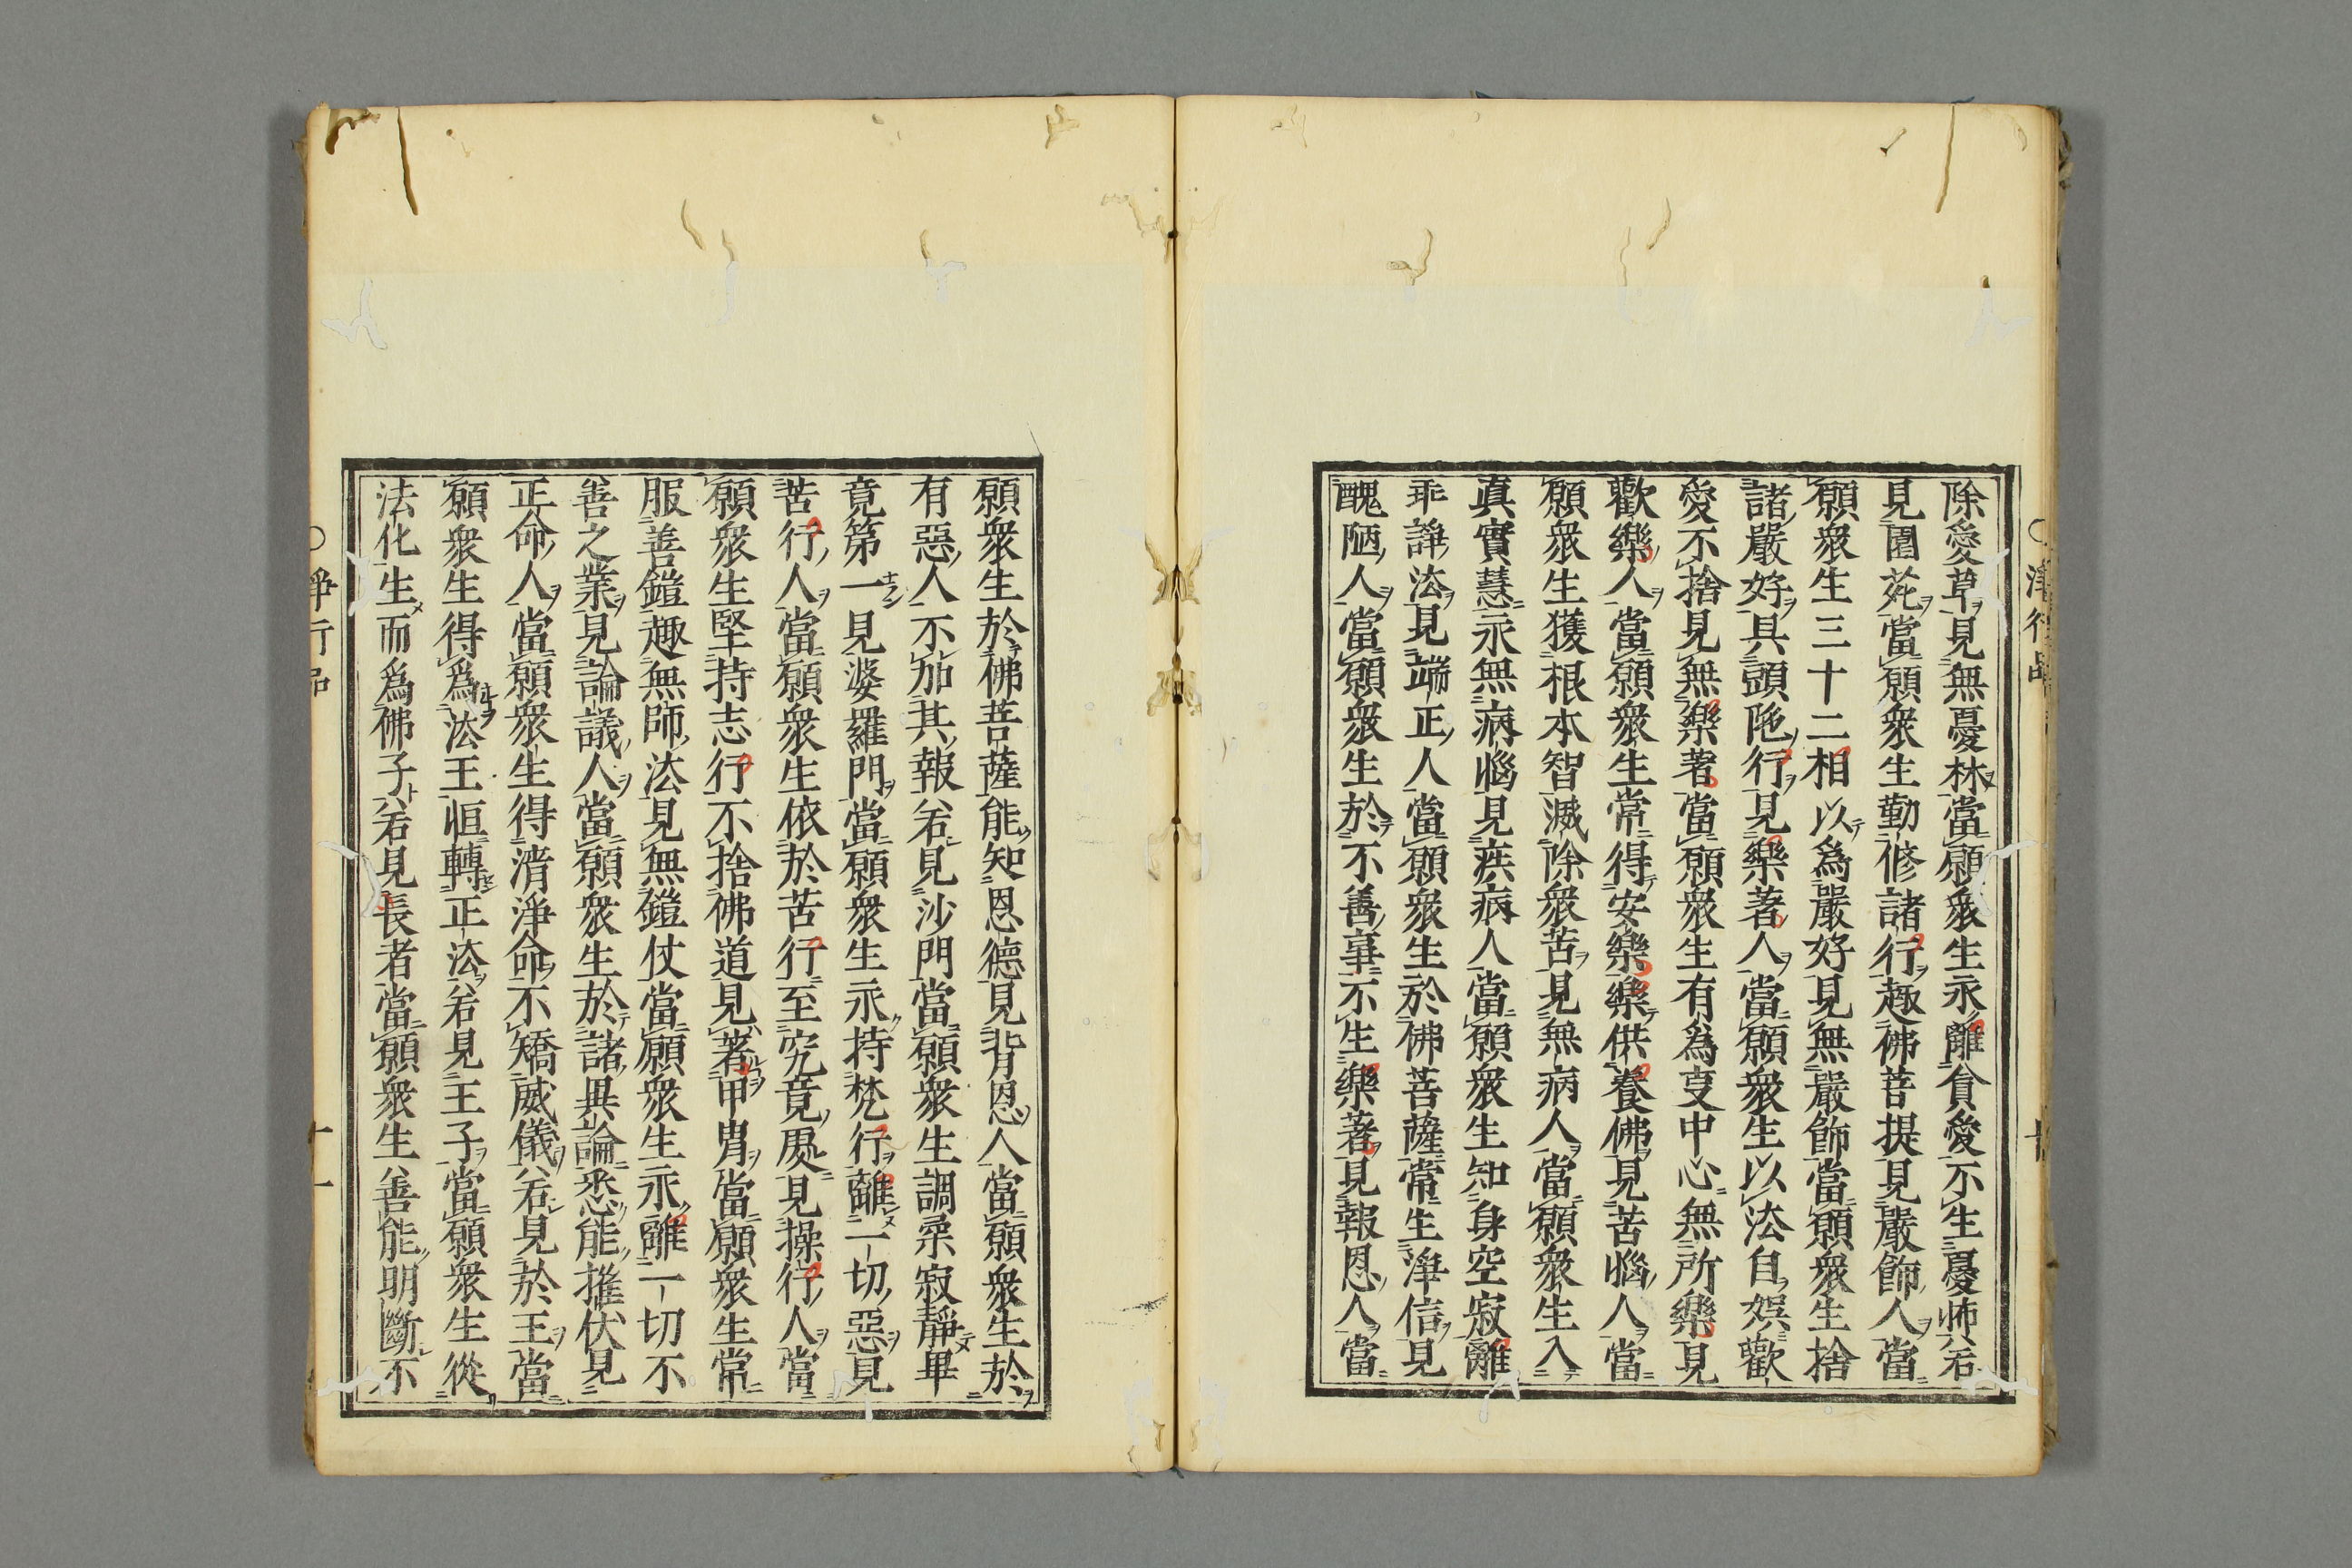 除愛草見無憂林當願衆生永離貪愛不生憂怖若
見園苑當願衆生勤修諸行趣佛菩提見嚴飾人當
願衆生三十二相以爲嚴好見無嚴飾當願衆生捨
諸嚴好具頭陁行見樂著人當願衆生以法自娯歡
愛不捨見無樂著當願衆生有爲事中心無所樂見
歡樂人當願衆生常得安樂樂供養佛見苦惱人當
願衆生獲根本智滅除衆苦見無病人當願衆生入
真實慧永無病惱見疾病人當願衆生知身空寂離
乖諍法見端正人當願衆生於佛菩薩常生淨信見
醜陋人當願衆生於不善事不生樂著見報恩人當
願衆生於佛菩薩能知恩德見背恩人當願衆生於
有惡人不加其報若見沙門當願衆生調柔寂靜畢
竟第一見婆羅門當願衆生永持梵行離一切惡見
苦行人當願衆生依於苦行至究竟處見操行人當
願衆生堅持志行不捨佛道見著甲冑當願衆生常
服善鎧趣無師法見無鎧仗當願衆生永離一切不
善之業見論議人當願衆生於諸異論悉能摧伏見
正命人當願衆生得清淨命不矯威儀若見於王當
願衆生得爲法王恒轉正法若見王子當願衆生從
法化生而爲佛子若見長者當願衆生善能明斷不
淨行品
十一